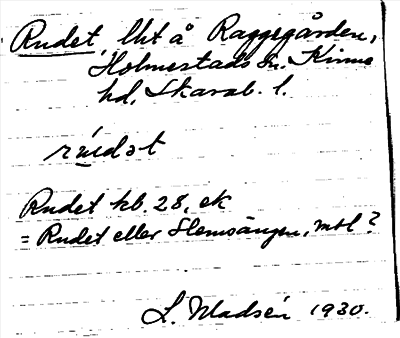 Rudet, lht å Raggegården,
Holmestads sn. Kinne
hd, Skarab. l.
rúdət
Rudet kb. 28, ek
= Rudet eller Stensängen, mtl?
L. Madsén 1930.